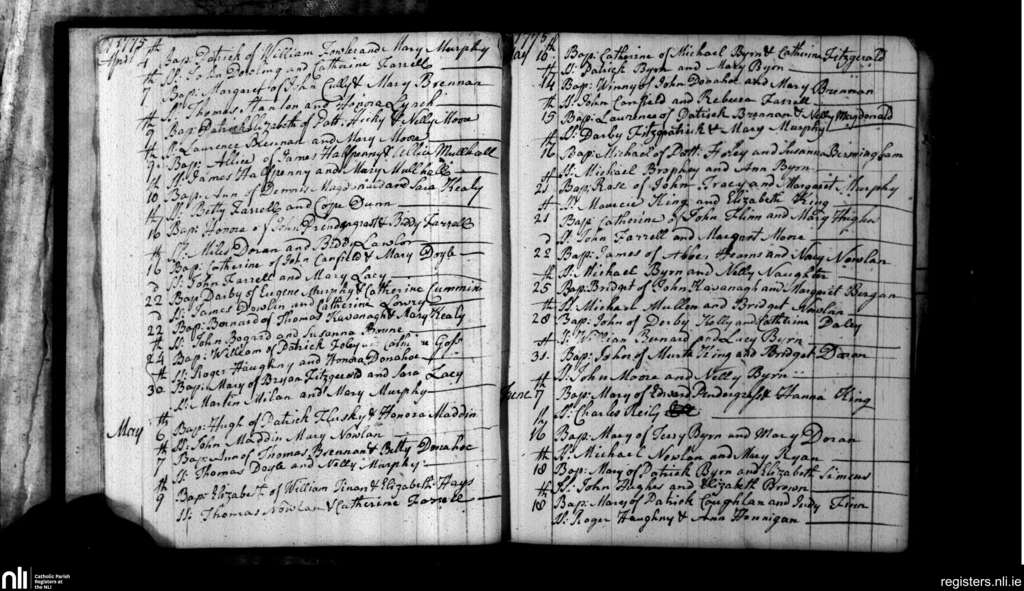 1775
April 4th Bap: Patrick of William Fowler and Mary Murphy
Sp: John Dowling and Catherine Farrell
7th Bap: Margaret of John Cully & Mary Brennan
Sp: Thomas Hanlon and Honora Lynch
9th Bap: Patrick Elizabeth of Patt: Hicky & Nelly Moore
Sp: Laurence Brennan and Mary Moore
9th Bap: Allice of James Halfpenny & Mullhall
Sp: James Halfpenny and Mary Mullhall
10th Bap: Ann of Dennis and Sara Kealy
Sp: Betty Farrell and Dunn
16th Bap: Honora of John Prendergrast & Biddy Farrell
Sp: Miles Doran and Biddy Lawlor
16th Bap: Catherine of John Canfield & Mary Doyle
Sp: John Farrell and Mary Lacy
22d Bap: Darby of Eugene Murphy & Catherine Cummins
Sp: James Dowlin and Catherine Lowry
22d Bap: Bernard of Thomas Kavanagh & Mary Kealy
Sp: John Bogard and Susanna
24th Bap: William of Patrick Foley Goss
Sp: Roger Haughny and Honora Donahoe
30th Bap: Mary of Bryan Fitzgerald and Sara Lacy
Sp: Martin Milan and Mary Murphy
May 6th Bap: Hugh of Patrick & Honora Maddin
Sp: John Maddin Mary Nowlan
7th Bap: Ann of Thomas Brennan & Betty Donahoe
Sp: Thomas Doyle and Nelly Murphy
9th Bap: Elizabeth of William Finan & Elizabeth Hays
Sp: Thomas Nowlan & Catherine Farrell
1775
May 10th Bap: Catherine of Michael Byrn & Catherine Fitzgerald
Sp: Patrick Byrn and Mary Byrn
14th Bap: Winny of John Donahoe and Mary Brennan
Sp: John Canfield and Rebecca Farrell
15th Bap: Laurence of Patrick Brannan & Nelly Magdonald
Sp: Darby Fitzpatrick & Mary Murphy
16th Bap: Michael of Patt: Foley and Susanna Bermingham
Sp: Michael Brophey and Ann Byrn
21st Bap: Rose of John Gracy and Margaret Murphy
Sp: Maurice King and Elizabeth King
21st Bap: Catherine of John Flinn and Mary Hughs
Sp: John Farrell and Margret More
22d Bap: James of Hearns and Mary Nowlan
Sp: Michael Byrn and Nelly Naughter
25th Bap: Bridget of John Kavanagh and Margaret Beagan
Sp: Michael Mullen and Bridget Nowlan
28th Bap: John of Derby Kelly and Catherine Daley
Sp: William Bernard and Lucy Byrn
31st Bap: John of Murth King and Bridget Doran
Sp: John Moore and Nelly Byrn
June 7th Bap: Mary of Edward Pendergrast & Hanna King
Sp: Charles Reily
16th Bap: Mary of Terry Byrn and Mary Doran
Sp: Michael Nowlan and Mary Ryan
18th Bap: Mary of Patrick Byrn and Elizabeth Simens
Sp: John Hughes and Elizabeth Brown
18th Bap: Mary of Patrick Coughlan and Judy Finn
Sp: Roger Haughny & Ann Hennigan
nli Catholic Parish
Registers at
the NLI
registers.nli.ie